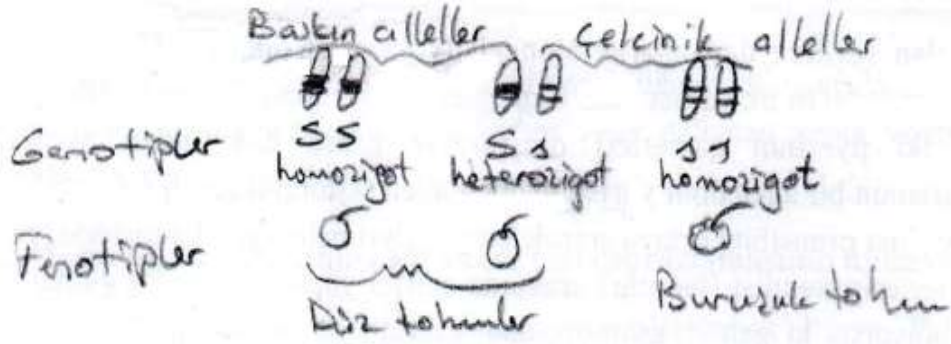 Baskın alleller çekinik alleller
Genotipler SS Ss ss
homozigot heterozigot homozigot
Fenotipler
Düz tohumlar Buruşuk tohum